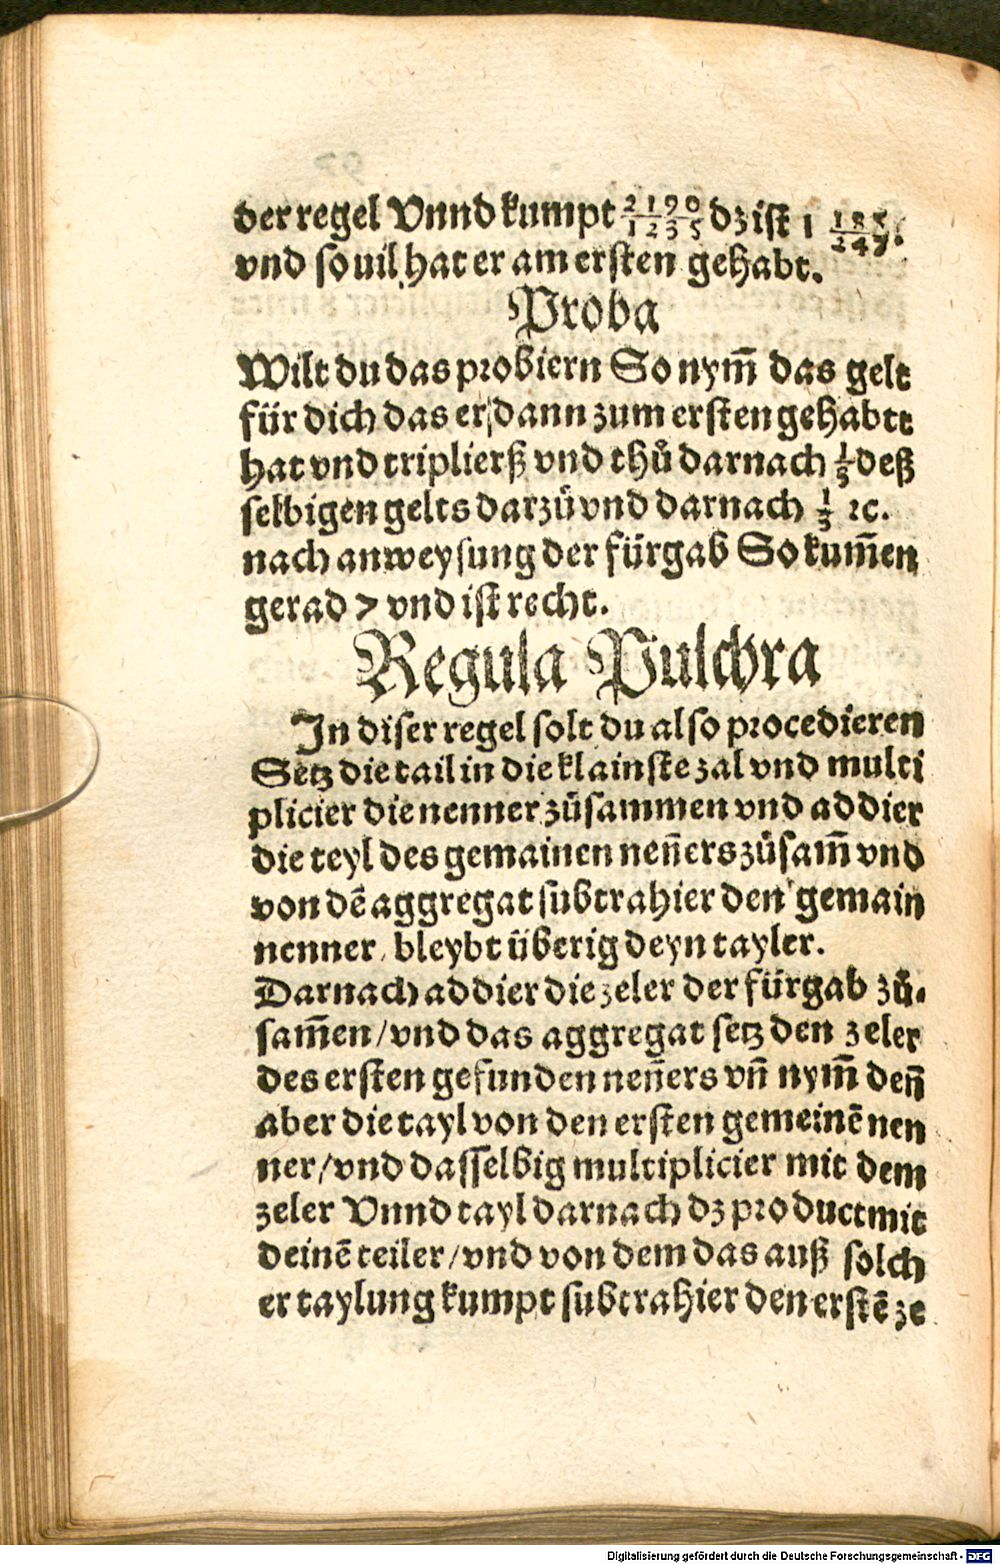 der regel Vnnd kumpt 2190/1235 dz ist 1 185/247.
vnd so uil hat er am ersten gehabt.
Proba
Wilt du das probiern So nym̄ das gelt
für dich das er dann zum ersten gehabtt
hat vnd triplierß vnd thů darnach ⅕ deß
selbigen gelts darzů vnd darnach ⅓ ꝛc.
nach anweysung der fürgab So kum̄en
gerad 7 vnd ist recht.
Regula Pulchra
In diser regel solt du also procedieren
Setz die tail in die klainste zal vnd multi
plicier die nenner zůsammen vnd addier
die teyl des gemainen nen̄ers zůsam̄ vnd
von dē aggregat subtrahier den gemain
nenner, bleybt überig deyn tayler.
Darnach addier die zeler der fürgab zů⸗
sam̄en/vnd das aggregat setz den zeler
des ersten gefunden nen̄ers vn̄ nym̄ den̄
aber die tayl von den ersten gemeinē nen
ner/vnd dasselbig multiplicier mit dem
zeler Vnnd tayl darnach dz product mit
deinē teiler/vnd von dem das auß solch
er taylung kumpt subtrahier den erstē ze
Digitalisierung gefördert durch die Deutsche Forschungsgemeinschaft - DFG